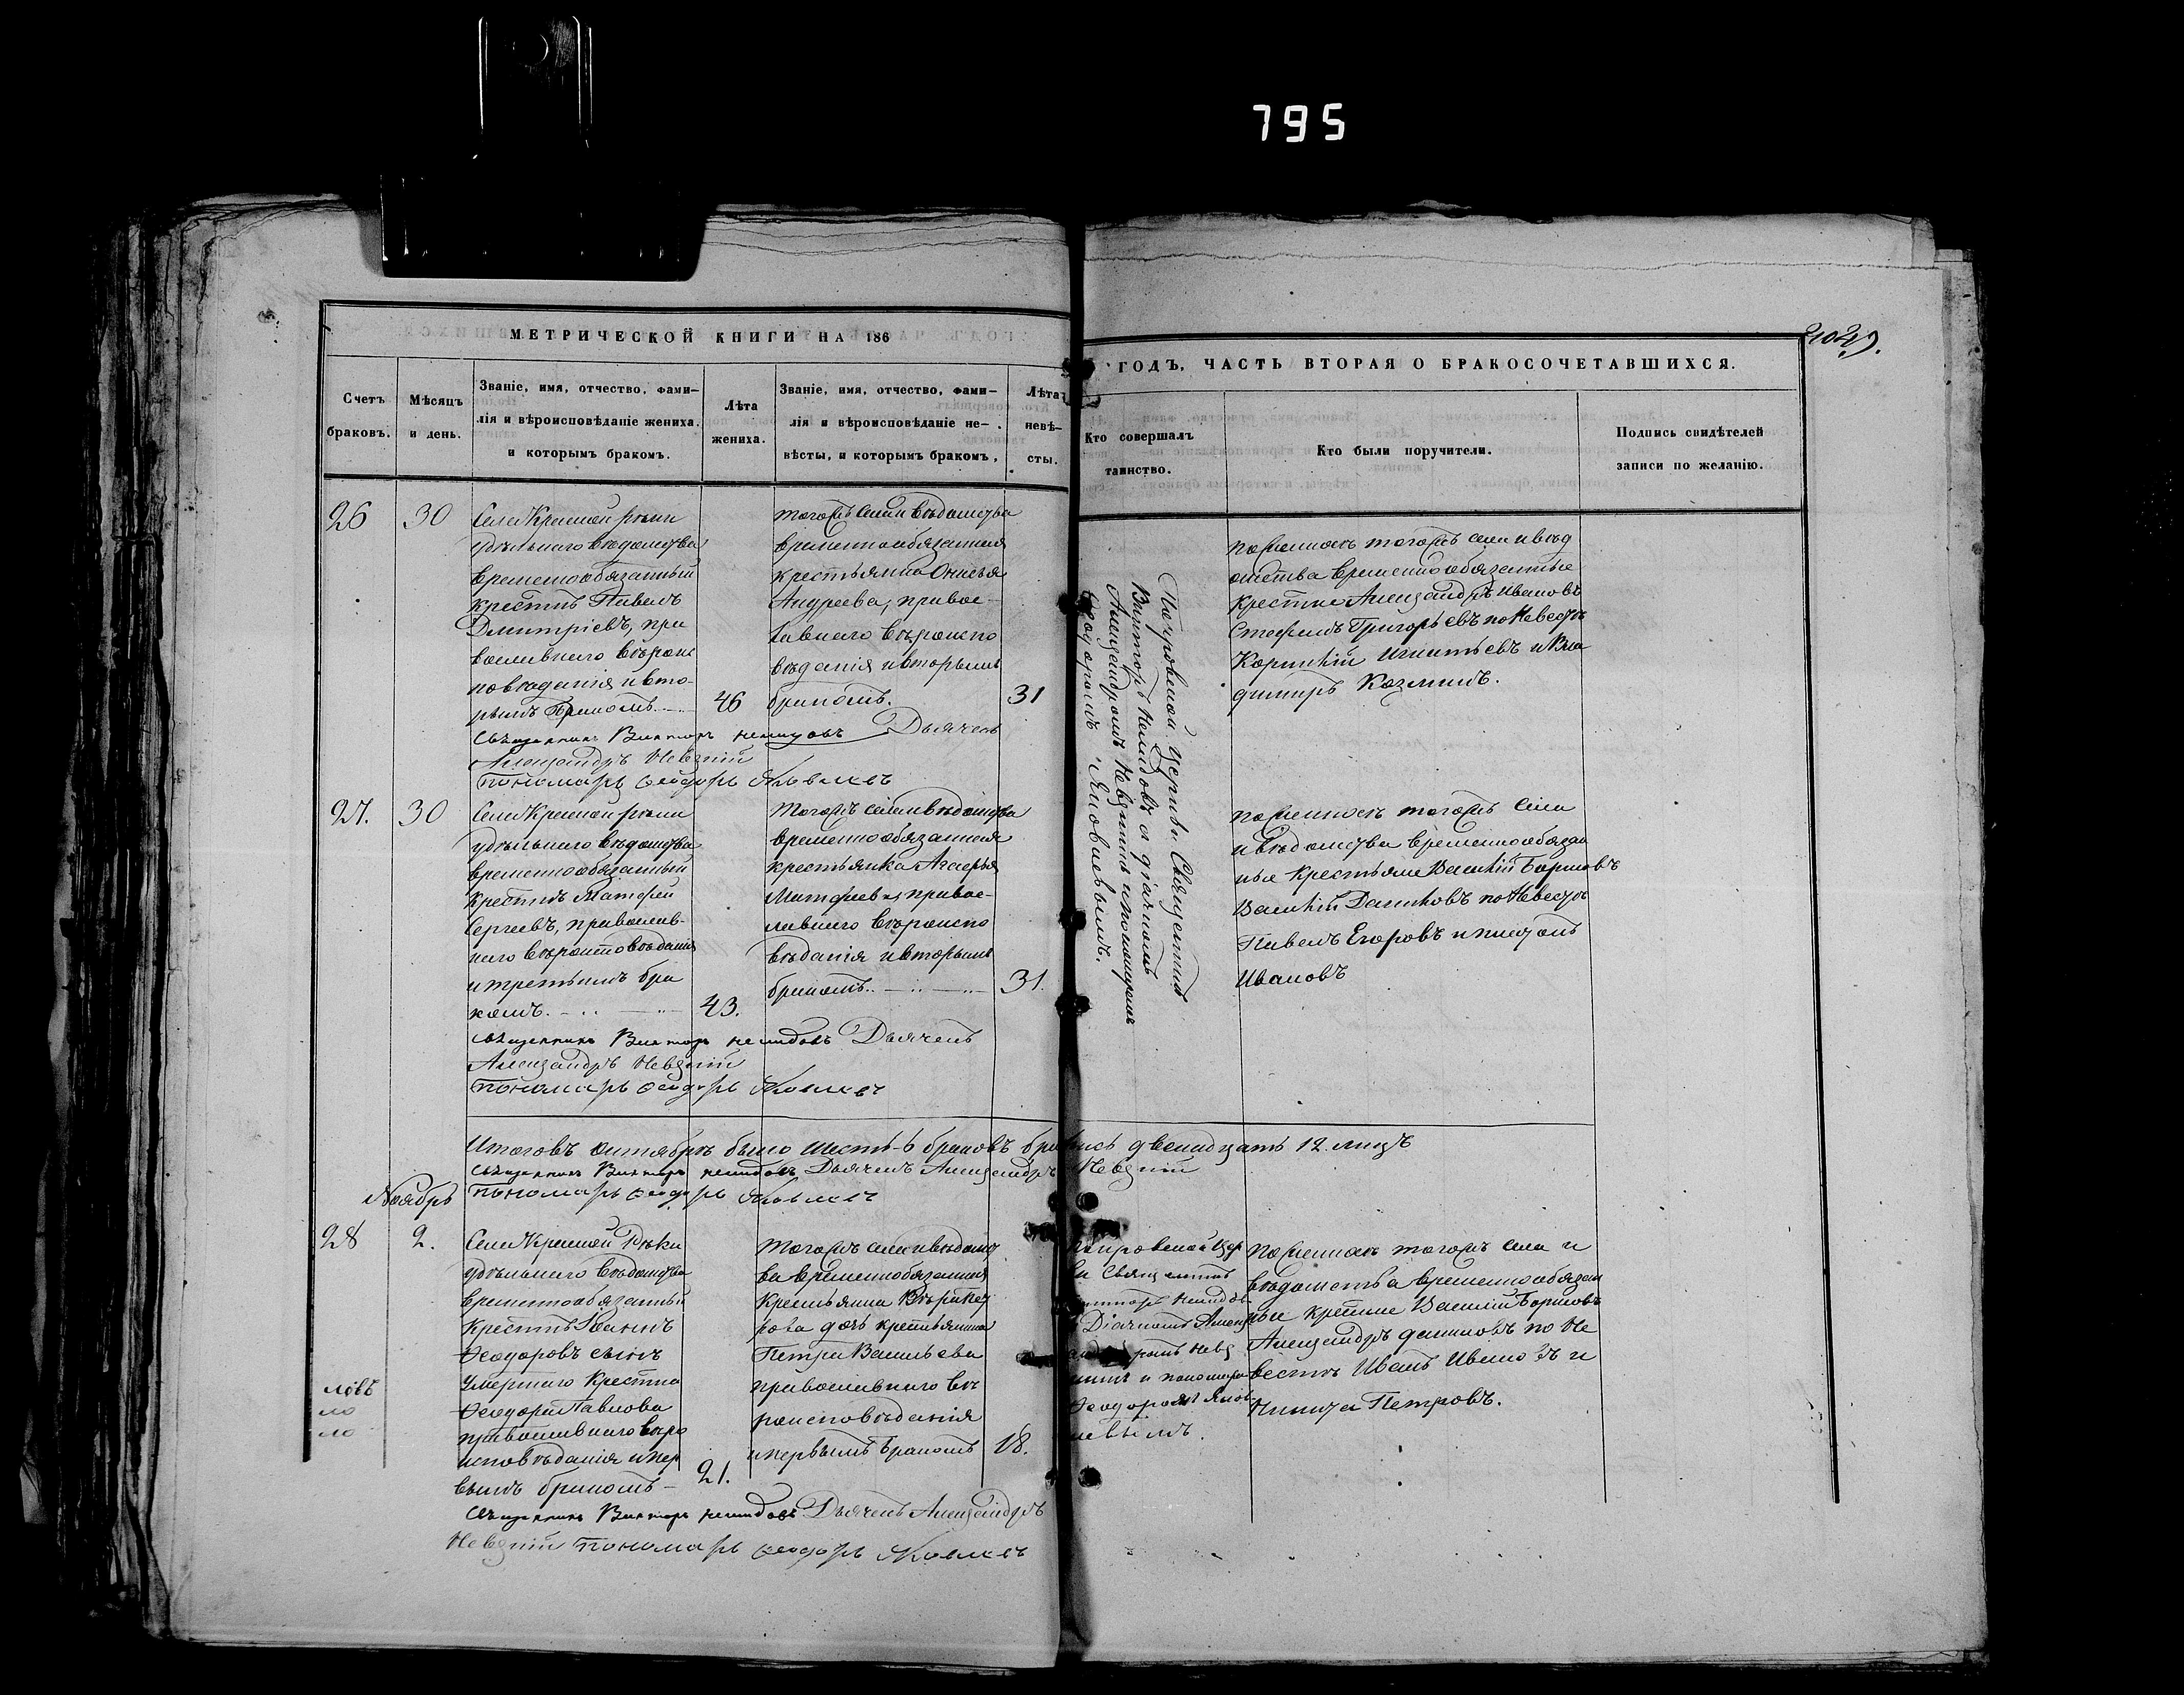 795
МЕТРИЧЕСКОЙ КНИГИ НА 186
ГОДЪ, ЧАСТЬ ВТОРАЯ О БРАКОСОЧЕТАВШИХСЯ.
Счетъ
браковъ.
Мѣсяцъ
и день.
Званіе, имя, отчество, фами-
лія и вѣроисповѣданіе жениха.
и которымъ бракомъ.
Лѣта
жениха.
Званіе, имя, отчество, фами-
лія и вѣроисповѣданіе не-
вѣсты, и которымъ бракомъ,
Лѣта
невѣ-
сты.
Кто совершалъ
таинство.
Кто были поручители.
Подпись свидѣтелей
записи по желанію.
26
30
Села Красной рѣки
удѣльнаго вѣдомства
временнообязанный
крестнъ Павелъ
Дмитріевъ, пра
вославнаго вѣроис
повѣданія и вто-
рымъ бракомъ
46
тогожъ села и вѣдомства
временнообязанная
крестьянка
Андреева, правос-
лавнаго вѣроиспо
вѣданія и вторымъ
бракомъ.
31
Покровской церкви Священникъ
Викторъ Немидовъ съ діячкомъ
Александромъ Невзкимъ и пономаремъ
Ѳеодоромъ Яковлевымъ.
по женихѣ тогожъ села и вѣд
омства временнообязанные
крестне Александръ Ивановъ
Стефанъ Григорьевъ по Невестѣ
Игнатьевъ и Вла
димиръ Козминъ.
Священникъ Викторъ Немидовъ Дьячекъ
Александръ
Пономарь Ѳеодоръ Яковлевъ
27.
30
Села Красной рѣки
удѣльнаго вѣдомства
временнообязанный
крестнъ Матфей
Сергеевъ, православ-
наго вѣроисповѣданія
и третьимъ бра
комъ.
43.
тогожъ села и вѣдомства
временнообязанная
крестьянка Агафья
Матфеева православ-
лавнаго вѣроиспо
вѣданія и вторымъ
бракомъ
31.
по женихѣ тогожъ села
и вѣдомства временнообязан
ные крестьяне Василій Борисовъ
Василій Даниловъ по Невестѣ
Павелъ Егоровъ и
Ивановъ
Священникъ Викторъ Немидовъ Дьячекъ
Александръ
Пономарь Ѳеодоръ Яковлевъ
Итого въ октябрѣ было шесть 6 браковъ двенадцать 12 лицъ
Священникъ Викторъ Немидовъ Дьячекъ Александръ
Пономарь Ѳеодоръ Яковлевъ
Ноябрь
28
2.
Села Красной Рѣки
удѣльнаго вѣдомства
временнообязанный
крестнъ Іоаннъ
Ѳеодоровъ сынъ
умершаго крестна
Ѳеодора Павлова
православнаго вѣро
исповѣданія и пер
вымъ бракомъ
21.
тогожъ села и вѣдомст
ва временнообязанная
крестьянка Вѣра Пет
рова дочь крестьянина
Петра Васильева
православнаго вѣ
роисповѣданія
и первымъ бракомъ
18.
Покровской цер
Священникъ
Немидовъ
Діячкомъ Алекс
и пономаре
Ѳеодоромъ Яков
левымъ.
по женихѣ тогожъ села и
вѣдомства временнообязан
ные крестне Василій Борисовъ
Александръ Даниловъ по Не
вестѣ Иванъ Ивановъ и
Никита Петровъ.
Священникъ Викторъ Немидовъ Дьячекъ Александръ
Пономарь Ѳеодоръ Яковлевъ